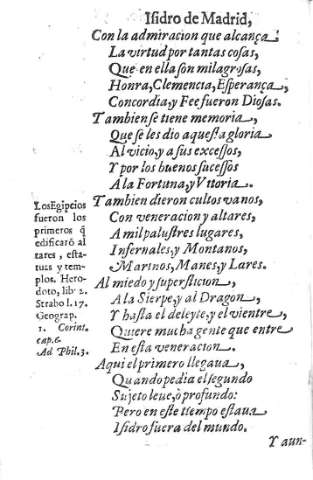 Isidro de Madrid,
Con la admiracion que alcança
La virtud por tantas cosas,
Que en ella son milagrosas,
Honra, Clemencia, Esperança,
Concordia, y Fee fueron Diosas.
Tambien se tiene memoria,
Que se les dio aquesta gloria
Al vicio, y a sus excessos,
Y por los buenos sucessos
A la Fortuna, y Vitoria.
Tambien dieron cultos vanos,
Con veneracion y altares,
A mil palustres lugares,
Infernales, y Montanos,
Marinos, Manes, y Lares.
Al miedo y supersticion,
A la Sierpe, y al Dragon,
Y hasta el deleyte, y el vientre,
Quiere mucha gente que entre
En esta veneracion.
Aqui el primero llegaua,
Quando pedia el segundo
Sujeto leue, ò profundo:
Pero en este tiempo estaua
Isidro fuera del mundo.
Y aun-
Los Egipcios
fueron los
primeros q̃
edificarõ al
tares, esta-
tuas y tem-
plos. Hero-
doto, lib 2.
Strabo l. 17.
Geograp.
1. Corint.
cap. 6.
Ad Phil. 3.